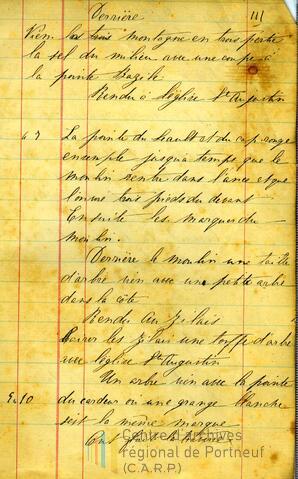 Derrière 111
Viem les trois montagne en trois partie
la sel du milieu avec une coupe à
la pointe Bazile
Rendu à l'église St Augustin
la pointe du Seault et du cap rouge
ensemple jusqu'a temps que le
moulin rentre dans l'ance et que
trois pieds du devant
Ensuite les marques du
moulin.
Derrière le moulin une taille
d'arbre vien avec une petite arbre
dans la côte
Rendu au
les une touffe d'arbre
avec l'église St Augustin
Un arbre vien avec la pointe
du cardeur ou une grange blanche
10
sest la même marque
Centre d'archives
régional de Portneuf
(C.A.R.P.)